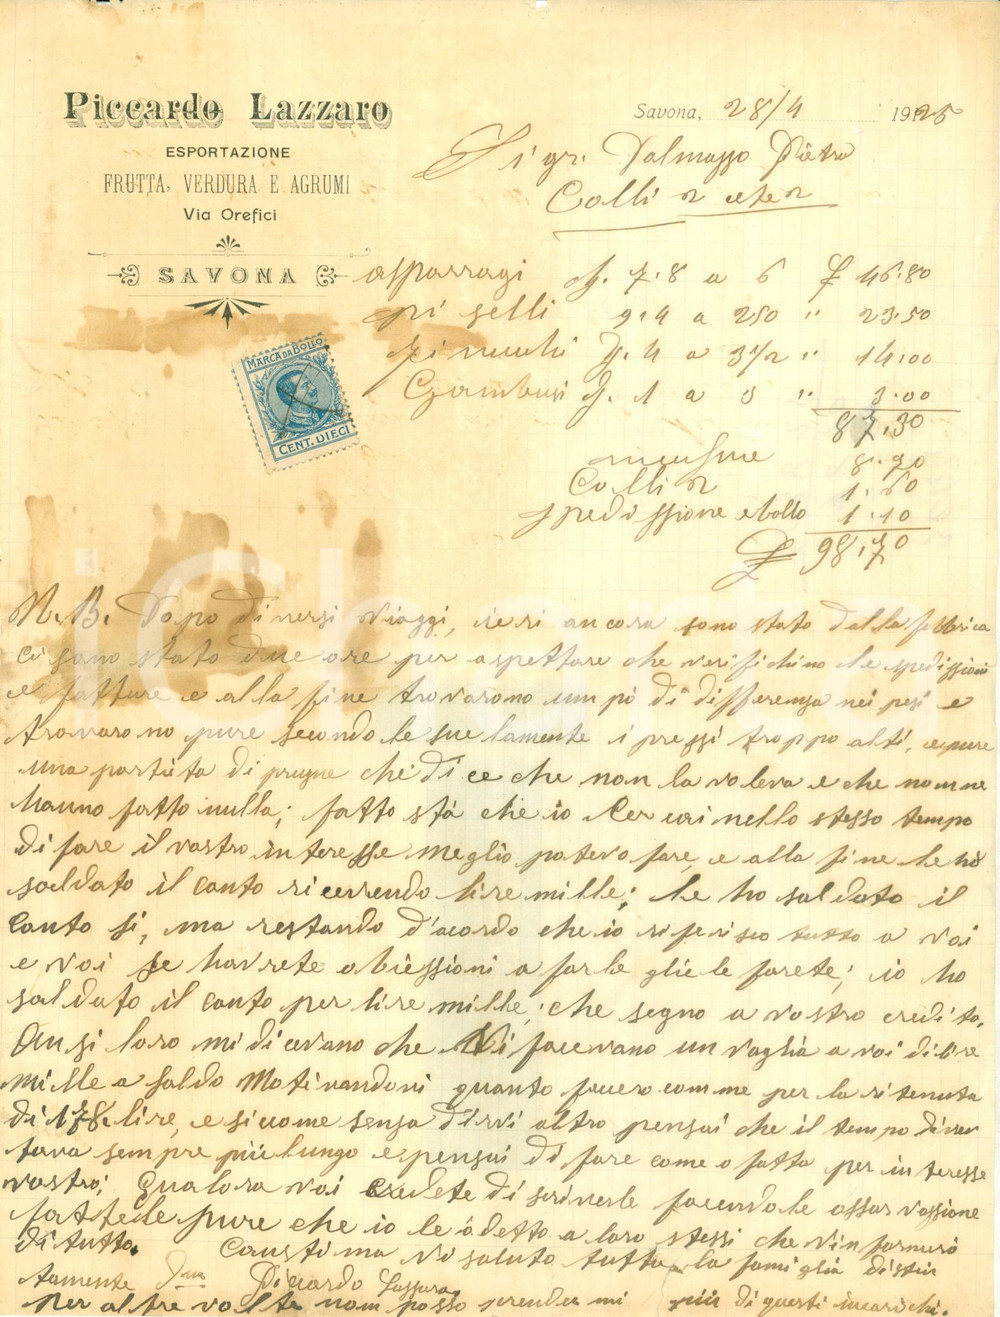 Piccardo Lazzaro
ESPORTAZIONE
FRUTTA, VERDURA E AGRUMI
Via Orefici
SAVONA
Savona, 28/4 1925
Sigr. Dalmazzo Pietro
Colli 2
asparragi g. 7.8 a 6 £ 46.80
piselli 9.4 a 250 " 23.50
Zinucchi g. 4 a 3 1/2 " 14.00
g. 1 a 3 " 3.00
87.30
8.70
Colli 2 1.60
spedissione e bollo 1.10
£ 98.70
MARCA DA BOLLO
CENT. DIECI
N.B. Dopo diversi viaggi, ieri ancora sono stato dalla febbrica
ci sono stato due ore per aspettare che verifichino le spedissioni
e fatture e alla fine trovarono un pò di differensa nei pesi e
trovarono pure secondo le sue lamente i pressi troppo alti, epure
una partita di prugne che dice che non la voleva e che non ne
hanno fatto nulla; fatto stà che io cercai nello stesso tempo
di fare il vostro interesse meglio potevo fare, e alla fine le hò
saldato il canto ricevendo lire mille; le ho saldato il
Conto si, ma restando d'acordo che io riferisco tutto a voi
e voi se havrete obiessioni a farle gliele farete; io ho
saldato il conto per lire mille, che segno a vostro credito.
Ansi loro mi dicevano che Vi facevano un vaglia a voi di lire
mille a saldo Motivandoni quanto facero comme per la ritenuta
di 178 lire, e sicome sensa dirvi altro pensai che il tempo diven
tava sempre più lungo e pensai di fare come o fatto per interesse
vostro; Qualora voi credete di scriverle facendole osservassione
fattele pure che io le ò detto a loro stessi che vi informerò
di tutto. Constima vi saluto tutta la famiglia distin
tamente Piccardo Lazzaro
Per altre volte non posso prendermi più di questi incarichi.